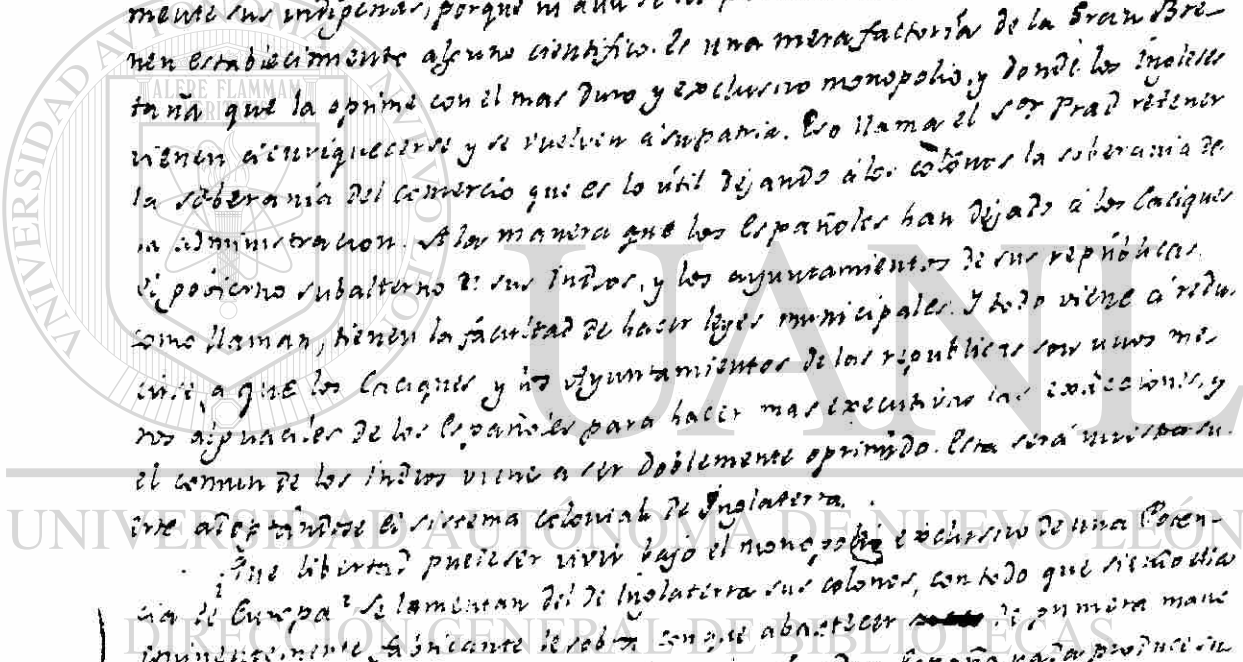 mente sus indigenas, porque ni aun se les
nen establecimiento alguno cientifico. Es una mera factoría de la Gran Bre-
taña que la oprime con el mas duro y exclusivo monopolio, y donde los Ingleses
vienen á enriquecerse y se vuelven á su patria. Eso llama el Sor Prad retener
la soberanía del comercio que es lo útil dejando á los colonos la soberania de
la administracion. A la manera que los Españoles han dejado á los Caciques
el govierno subalterno de sus Indios, y los ayuntamientos de sus repúblicas,
como llaman, tienen la facultad de hacer leyes municipales. Y todo viene á redu-
cirse, a que los Caciques y los Ayuntamientos de las republicas son unos me-
ros alguaciles de los Españoles para hacer mas executivas las exacciones, y
el comun de los Indios viene a ser doblemente oprimido. Esta será nuestra su-
erte adoptandose el sistema colonial de Inglaterra.
¿Que libertad puede ser vivir bajo el monopolio exclusivo de una Poten-
cia de Europa? Se lamentan del de Inglaterra sus colonos, con todo que siendo ella
fabricante le sobra con que abastecer de primera mano
España nada produce
UNIVERSIDAD AUTÓNOMA DE NUEVO LEÓN
ALERE FLAMMAM
UANL
UNIVERSIDAD AUTÓNOMA DE NUEVO LEÓN
DIRECCIÓN GENERAL DE BIBLIOTECAS